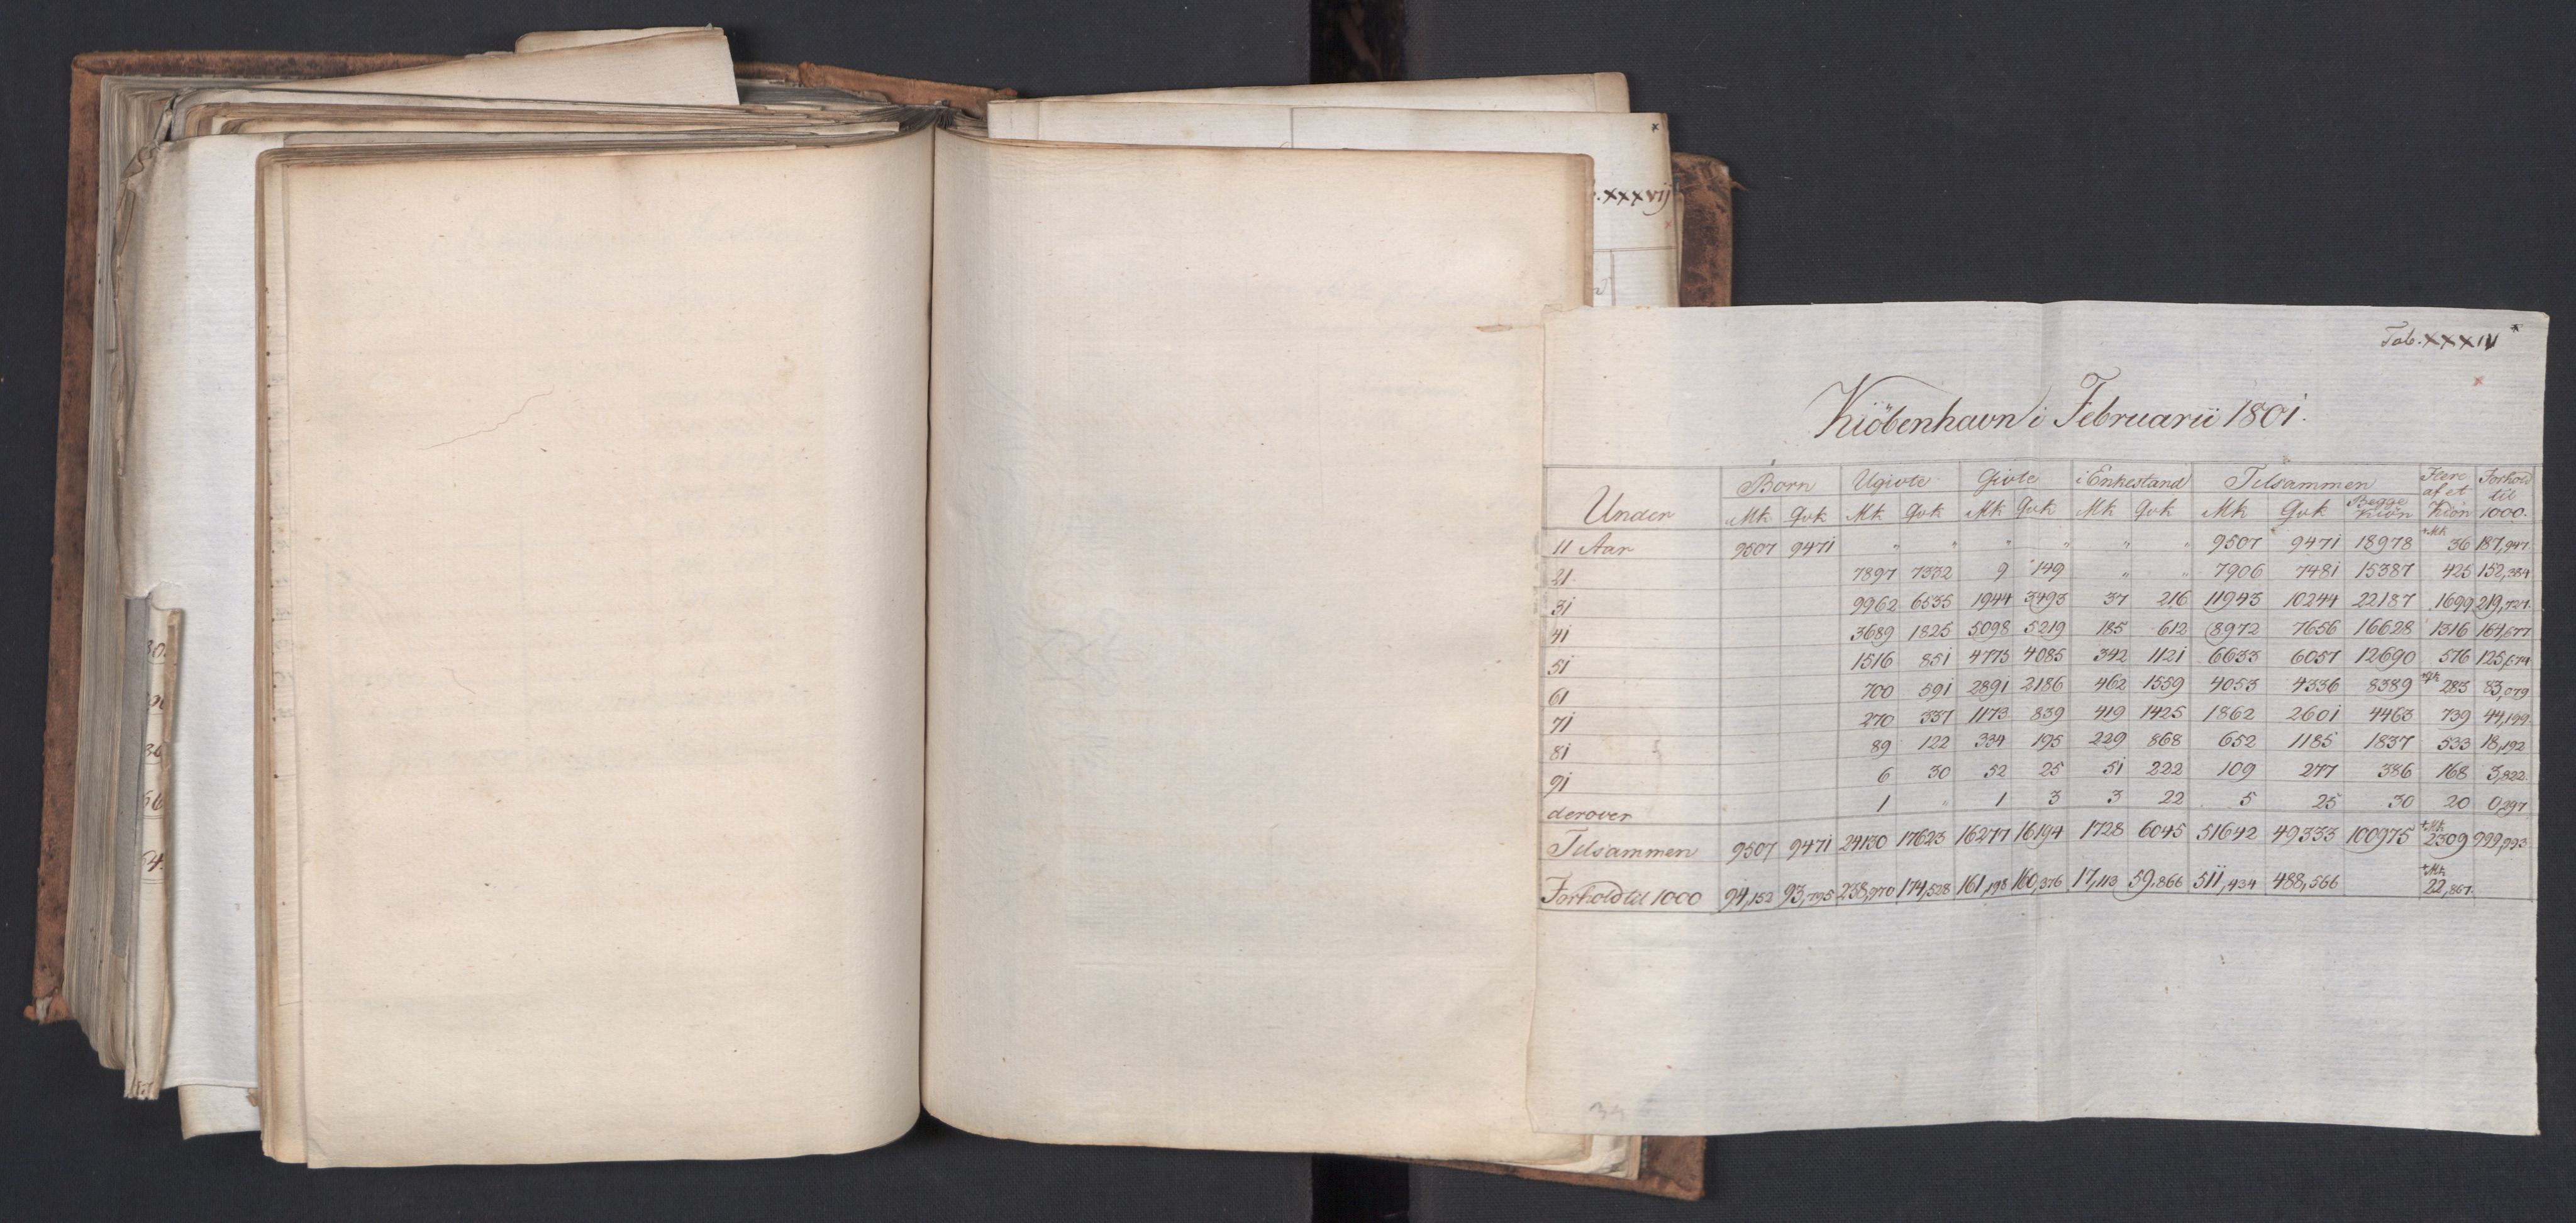 xxxvij
Tab. XXXIV
Kiöbenhavn i Februarii 1801.
Under Børn Ugivte Givte i Enkestand Tilsammen Flere af et Kiøn Forhold til 1000.
Mk Qvk Mk Qvk Mk Qvk Mk Qvk Mk Qvk Begge Kiøn
11 Aar 9507 9471 " " " " " " 9507 9471 18978 +Mk 36 187,947
21. 7897 7332 9 149 " " 7906 7481 15387 425 152,384
31 9962 6535 1944 3493 37 216 11943 10244 22187 1699 219,727
41 3689 1825 5098 5219 185 612 8972 7656 16628 1316 164,677
51 1516 851 4775 4085 342 1121 6633 6057 12690 576 125,674
61 700 591 2891 2186 462 1559 4053 4336 8389 +Qk 283 83,079
71 270 337 1173 839 419 1425 1862 2601 4463 739 44,199
81 89 122 334 195 229 868 652 1185 1837 533 18,192
91 6 30 52 25 51 222 109 277 386 168 3,822
derover 1 " 1 3 3 22 5 25 30 20 0,297
Tilsammen 9507 9471 24130 17623 16277 16194 1728 6045 51642 49333 100975 +Mk 2309 999,993
Forhold til 1000 94,152 93,795 238,970 174,528 161,198 160,376 17,113 59,866 511,434 488,566 +Mk 22,867.
34